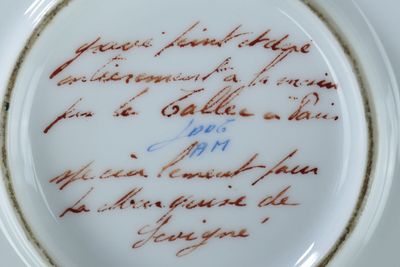 gravé peint et doré
entièrement à la main
par le Tallec à Paris
AM
spécialement pour
la Marquise de
Sévigné